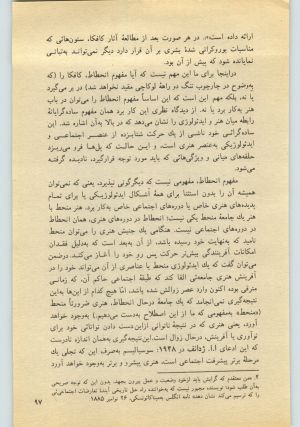 ارائه داده است»، در هر صورت بعد از مطالعهٔ آثار کافکا، ستون‌هائی که
مناسبات بوروکراتی شدهٔ بشری بر آن قرار دارد دیگر نمی‌توانـد به‌ثباتـی
نمایانده شود که پیش از آن بود.
دراینجا برای ما این مهم نیست که آیا مفهوم انحطاط، کافکا را (که
به‌وضوح در چارچوب تنگ در راهٔ لوکاچی مقید نخواهد شد) در بر می‌گیرد
یا نه. بلکه مهم این است که این اساساً مفهوم انحطاط را می‌توان در باب
هنر به‌کار برد یا نه. از دیدگاه نظری این کار برد همان مفهوم ساده‌گرایانهٔ
رابطه میان هنر و ایدئولوژی را نشان می‌دهد که در بالا به‌آن اشاره شد. این
ساده‌گرائی خود ناشی از یک حرکت شتابـزده از عنصـر اجتماعـی و
ایدئولوژیکی به‌عنصر هنری است، و ایـن حالـت که پل‌هـا فـرو می‌ریزد
حلقه‌های میانی و ویژگی‌هائی که باید مورد توجه قرارگیرد، نادیده گرفتـه
می‌شود.
مفهوم انحطاط، مفهومی نیست که دیگرگونی نپذیرد، یعنی که نمی‌توان
همیشه آن را بدون استثنا برای همهٔ أشکال ایدئولوژیکی یا برای تمام
پدیده‌های هنری خاص یا دوره‌های اجتماعی خاص به‌کار برد. هنر منحط با
هنر یک جامعهٔ منحط یکی نیست؛ انحطاط در دوره‌های هنری، همان انحطاط
در دوره‌های اجتماعی نیست. هنگامی یک جنبش هنری را می‌توان منحط
نامید که به‌نهایت خود رسیده باشد، از آن به‌بعد است که به‌دلیل فقدان
امکانات، آفرینندگی بیش‌تر حرکت پس رو خود را آغـاز می‌کنـد. درضمن
می‌توان گفت که یک ایدئولوژی منحط با عناصری از آن می‌تواند خود را در
آفرینش هنری جامعه‌ئی القا کند که طبقهٔ اجتماعی حاکم آن، که زمانـی
مترقی بوده اکنون وارد عصر زوالش شده باشد. امّا هیچ کدام از این‌ها به‌این
نتیجه‌گیری نمی‌انجامد که یک جامعهٔ درحال انحطاط، هنری ضرورتاً منحط
(«منحط» به‌مفهومی که ما از این اصطلاح به‌دست می‌دهیم.) به‌وجود خواهد
آورد، یعنی هنری که در نتیجهٔ ناتوانی ازاین‌دست دادن توانائی خود برای
نوآوری یا آفرینش، درحال زوال است. این‌نتیجه‌گیری به‌همان اندازه نادرست
است که این ادعای (أ. ژدانف در ۱۹۳۸): سوسیالیسم به‌صرف این که تجلی یک
مرحلهٔ برتر پیشرفت اجتماعی است، هنری پیشرو و برتر به‌وجود خواهد آورد
۴. «من معتقدم که گرایش باید ازخود وضعیت و عمل بیرون بجهد، بدون این که توجه صریحی
به‌آن طلب شود؛ نویسنده مجبور نیست که به‌خواننده راه حل تاریخی آیندهٔ تعارضات اجتماعی‌ئی
را که ترسیم می‌کند نشان دهد». نامه انگلس به‌مینا کائوتسکی، ۲۶ نوامبر ۱۸۸۵
۹۷